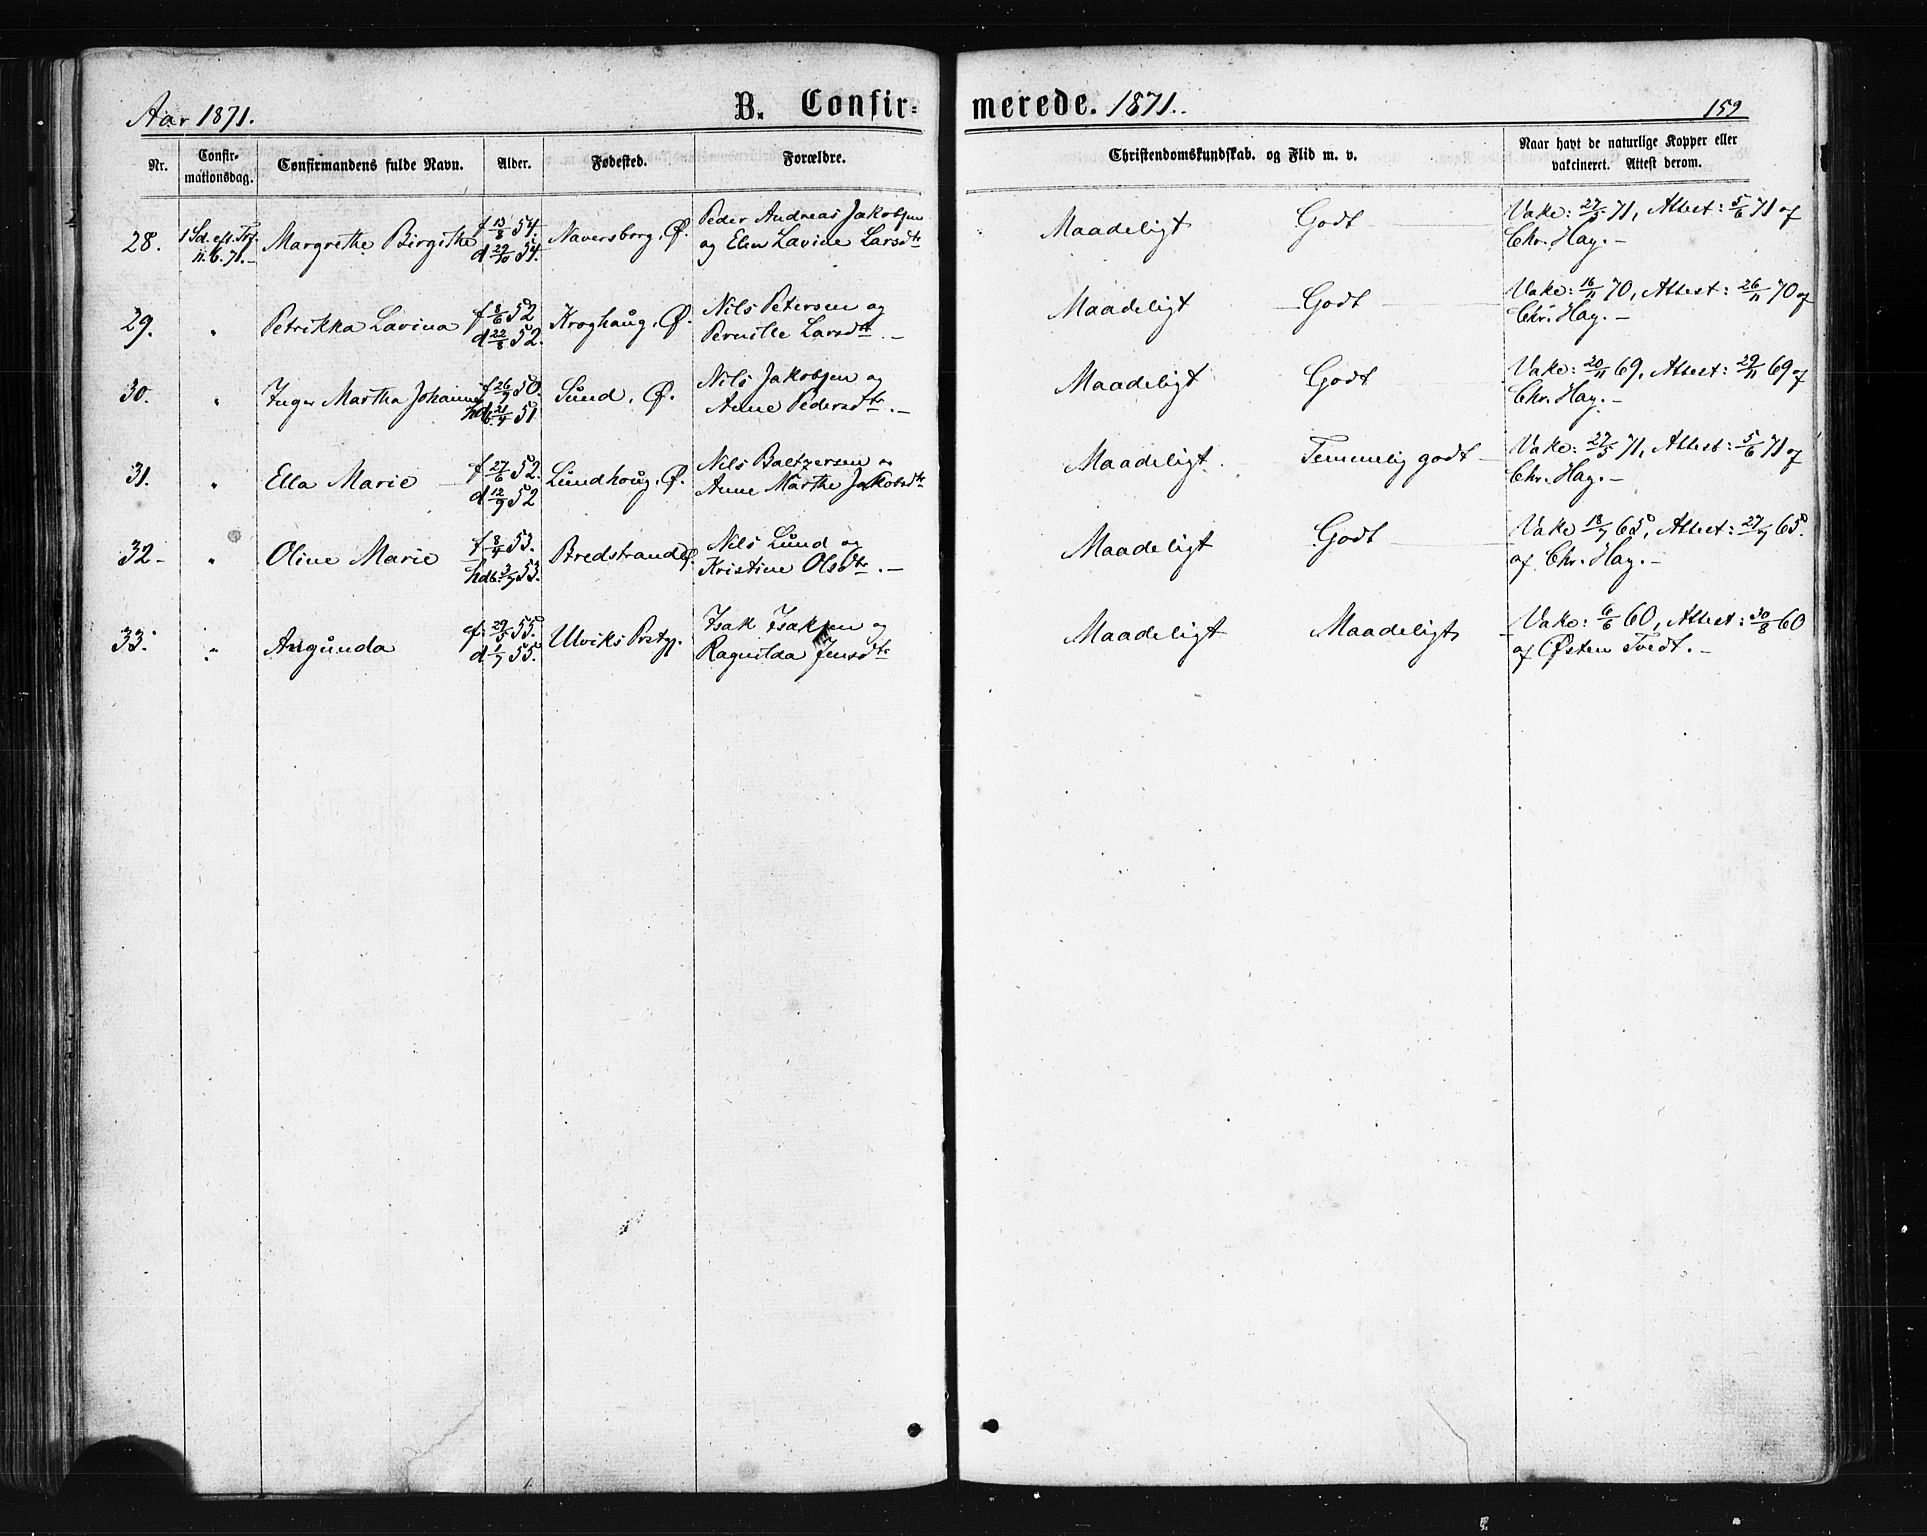 Aar 1871.
B. Confir-
merede. 1871.
159
Nr.
Confir-
mationsdag.
Confirmandens fulde Navn.
Alder.
Fødested.
Forældre.
Christendomskundskab. og Flid m. v.
Naar havt de naturlige Kopper eller
vakcineret. Attest derom.
28.
1 Sd. eft. Tref.
11.6.71.-
Margrethe Birgithe
f 13/8 54.
d 29/10 54.
Naversborg, Ø.
Peder Andreas Jakobsen
og Elen Lavine Larsdtr
Maadeligt
Godt
Vake: 27/5 71, Attest: 5/6 71 af
Chr. Hay.-
29.
"
Petrikka Lavina
f 8/6 52
d 22/8 52.
Kroghaug, Ø.
Nils Petersen og
Pernille Larsdtr.-
Maadeligt
Godt
Vake: 16/11 70, Attest: 26/11 70 af
Chr. Hay.-
30.
"
Inger Martha Johanna
f 26/9 50.
hdb. 21/4 51
Sund, Ø.
Nils Jakobsen og
Anne Pedersdtr.-
Maadeligt
Godt
Vake: 20/11 69, Attest: 29/11 69 af
Chr. Hay.-
31.
"
Ella Marie
f 27/6 52.
d 12/9 52
Lundhoug, Ø.
Nils Baltzersen og
Anne Marthe Jakobsdtr
Maadeligt.
Temmelig godt
Vake: 27/5 71, Attest: 5/6 71 af
Chr. Hay.-
32-
"
Oline Marie
f 8/4 53.
hdb. 3/7 53.
Bredstrand, Ø.
Nils Lund og
Kristine Olsdtr.-
Maadeligt
Godt
Vake 18/7 65, Attest: 27/7 65.
af Chr. Hay.-
33.
"
Angunda
f. 29/5 55.
d 1/7 55.
Ulviks Prstgj.
Isak Isaksen og
Ragnilda Jensdtr
Maadeligt
Maadeligt
Vake: 6/6 60, Attest: 30/8 60
af Østen Tvedt.-